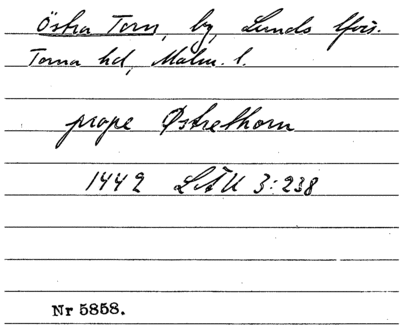 Östra Torn, by, Lunds lfrs.
Torna hd, Malm. l.
prope Østrethorn
1442 LÄU 3:238
Nr 5858.